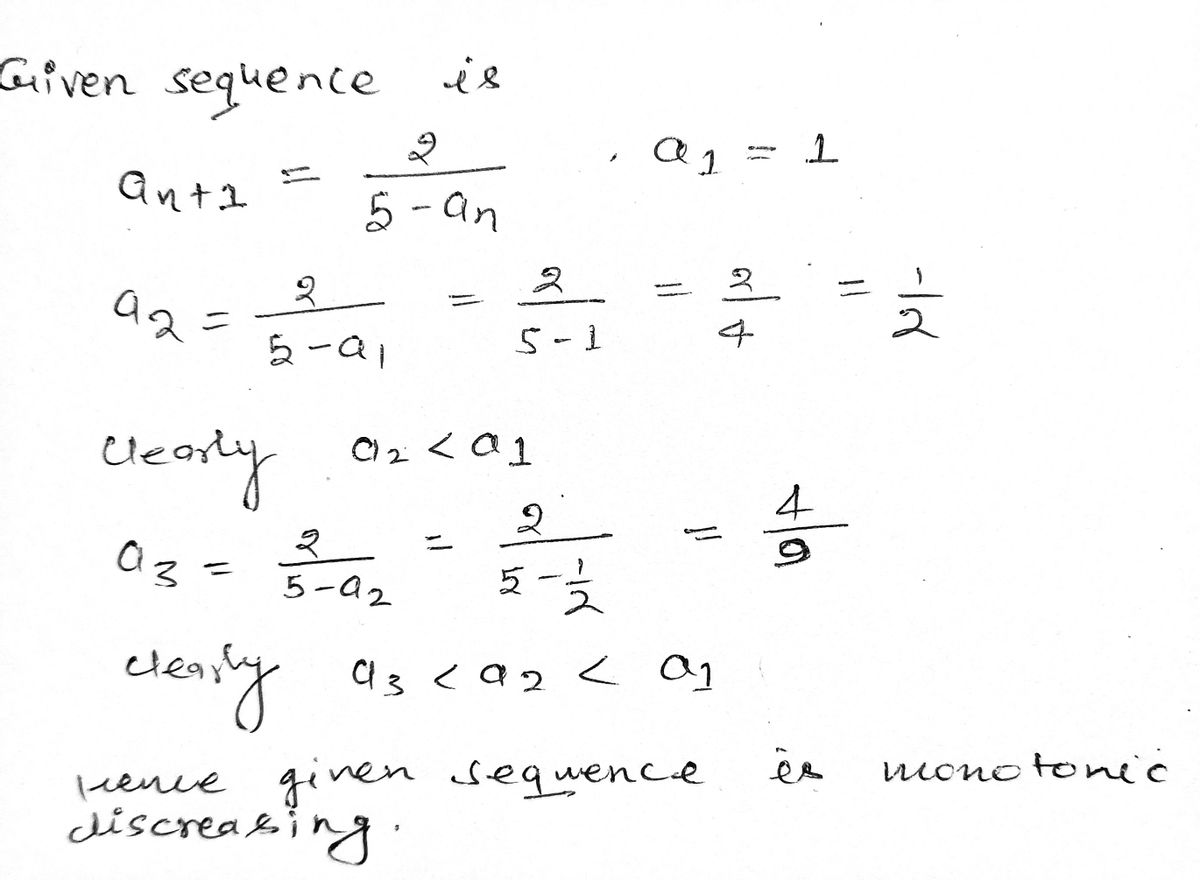 Given sequence is
a_{n+1} = \frac{2}{5-a_n} , a_1 = 1
a_2 = \frac{2}{5-a_1} = \frac{2}{5-1} = \frac{2}{4} = \frac{1}{2}
clearly a_2 < a_1
a_3 = \frac{2}{5-a_2} = \frac{2}{5-\frac{1}{2}} = \frac{4}{9}
clearly a_3 < a_2 < a_1
Hence given sequence is monotonic
discreasing.